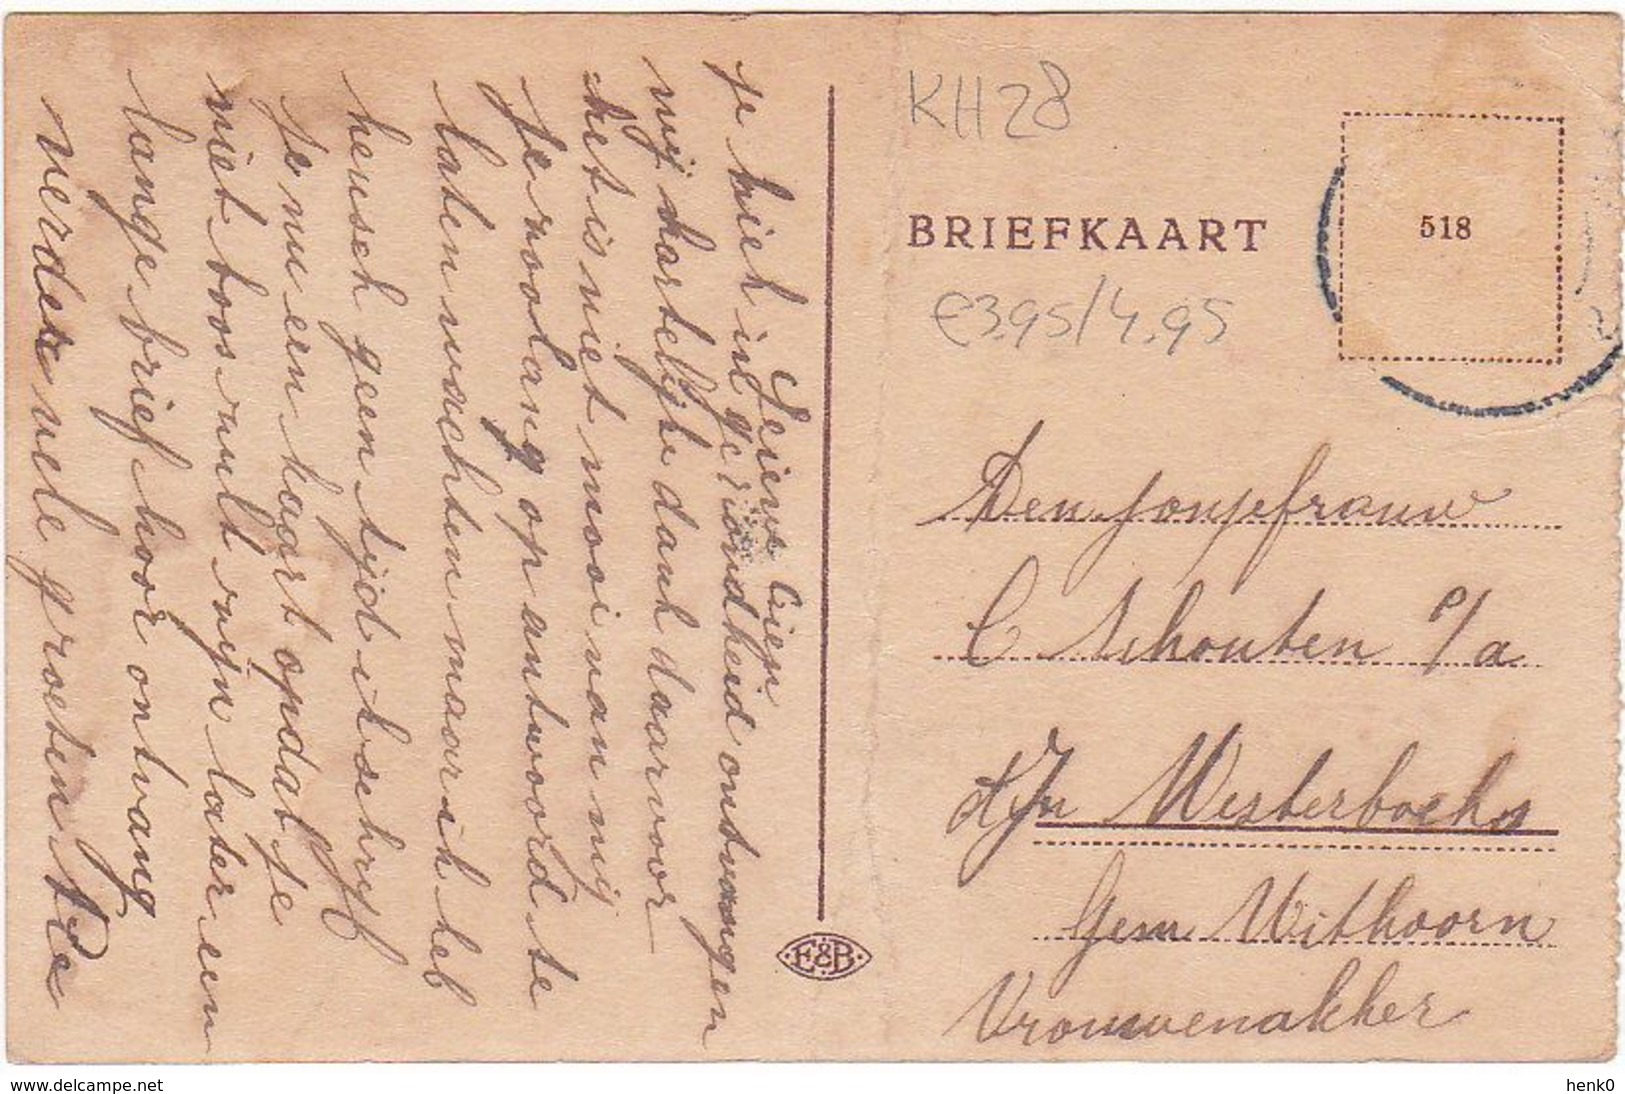 Lieve Cien
je briek in gezondheid ontvangen
mij hartelijke dank daarvoor
het is niet mooi van mij
je zoolang op antwoord te
laten wachten maar ik heb
heusch geen tijd ik schryf
je nu een kaart opdat je
niet boos zult zijn later een
lange brief hoor ontvang
verder vele groeten
KH28
BRIEFKAART
518
€3.95/4.95
Den Jonjefrauw
C Schouten p/a
d Hr Westerboehos
Gem Uithoorn
Vrouwenakker
E&B
www.delcampe.net
henk0